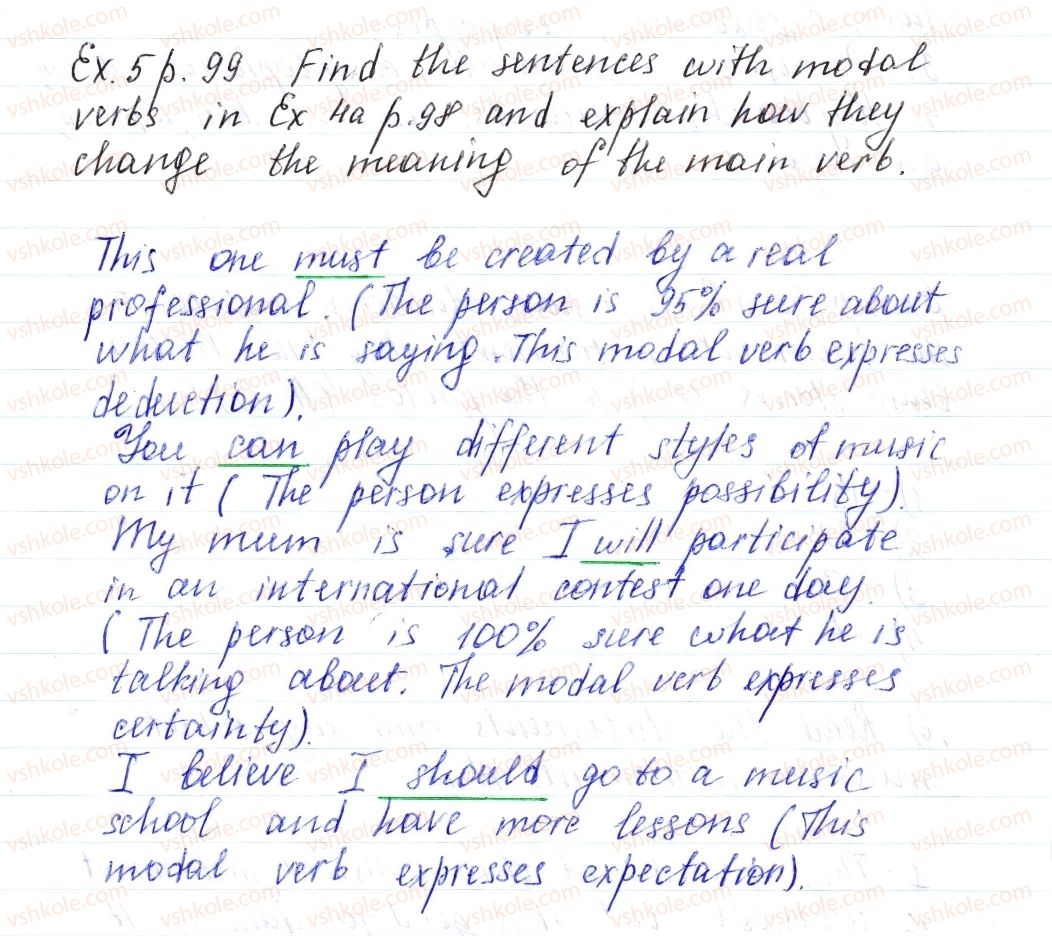 Ex. 5 p. 99 Find the sentences with modal
verbs in Ex 4a p.98 and explain how they
change the meaning of the main verb.
This one must be created by a real
professional. (The person is 95% sure about
what he is saying. This modal verb expresses
deduction).
You can play different styles of music
on it (The person expresses possibility).
My mum is sure I will participate
in an international contest one day.
(The person is 100% sure what he is
talking about. The modal verb expresses
certainty).
I believe I should go to a music
school and have more lessons (This
modal verb expresses expectation).